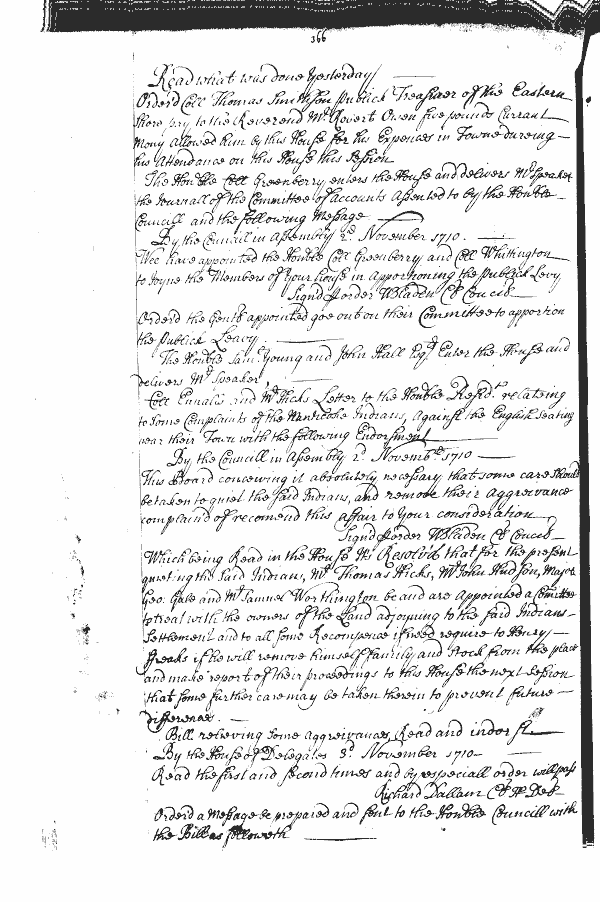 366
Read what was done Yesterday
Orderd Coll Thomas Smithson Publick Treasurer of the Eastern
Shore pay to the Reverend Mr Robert Owen five pounds Currant
Mony allowed him by this House for his Expences in Towne dureing
his Attendance on this House this Session
The Honble Coll Greenberry enters the House and delivers Mr Speaker
the Journall of the Committee of accounts Assented to by the Honble
Councill and the following Message
By the Councill in Assembly 2d November 1710.
Wee have appointed the Honble Coll Greenberry and Coll Whitington
to Joyne the Members of Your house in Apportioning the Publick Levy
Signd P order WBladen Cl Concil
Orderd the Gentl appointed goe out on their Committee to apportion
the Publick Leavy.
The Honble Saml Young and John Hall Esqr Enter the House and
delivers Mr Speaker
Coll Ennalls and Mr Hicks Letter to the Honble Presidt relateing
to some Complaints of the Nanticoke Indians, Against the English seating
near their Town with the following Endorsment
By the Councill in Assembly 2d Novembr 1710
This Board conceiving it absolutely necessary that some care should
be taken to quiet the said Indians, and remove their aggreivance
complaind of recomend this affair to Your consideration
Signd P order WBladen Cl Concil
Which being Read in the House Its Resolved that for the present
quieting the said Indians, Mr Thomas Hicks, Mr John Hudson, Major
Geo: Gale and Mr Samuel Worthington be and are appointed a Comittee
to treat with the owners of the Land adjoyning to the said Indians
Settlement and to all some Recompence if need require to Henry
Freaks if he will remove himself family and Stock from the place
and make report of their proceedings to this House the next Session
that some further care may be taken therein to prevent future
differences.
Bill releiving some aggreivances, Read and indorst
By the House of Delegates 3d November 1710
Read the first and second times and by especiall order will pass
Richard Dallam Cl H Del
Orderd a Message be prepared and sent to the Honble Councill with
the Bill as followeth